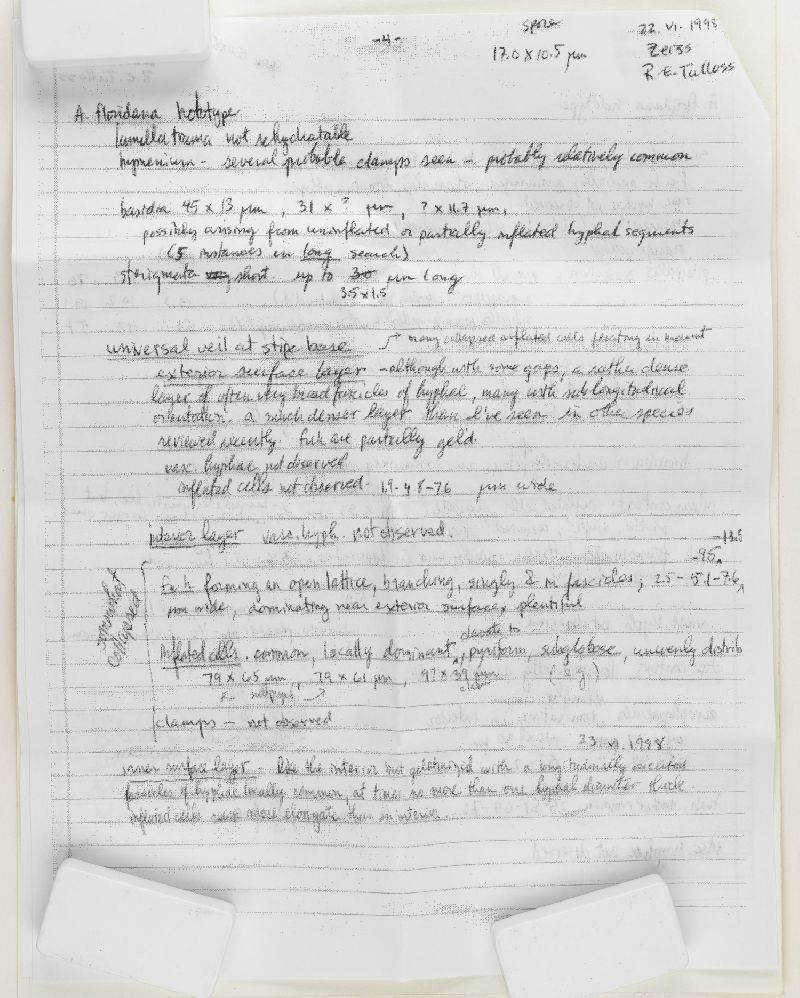 -4-
spore
17.0 x 10.5 µm
22.vi.1998
Zeiss
R.E. Tulloss
A. floridana holotype
lamella trama not rehydratable
hymenium - several probable clamps seen - probably relatively common
basidia 45 x 13 µm, 31 x ? µm, ? x 11.7 µm,
possibly arising from uninflated or partially inflated hyphal segments
(5 instances in long search)
sterigmata short up to 30 µm long
3.5 x 1.5
universal veil at stipe base → many collapsed inflated cells floating in mount
exterior surface layer - although with some gaps, a rather dense
layer of often very broad fascicles of hyphae, many with sublongitudinal
orientation. a much denser layer than I've seen in other species
reviewed recently. fuh are partially gel'd.
vasc. hyphae not observed
inflated cells not observed. 1.9-4.8-7.6 µm wide
interior layer vasc. hyph. not observed.
-9.5
somewhat collapsed
fuh forming an open lattice, branching, singly & in fascicles; 2.5-5.1-7.6
µm wide, dominating near exterior surface, plentiful
clavate to
Inflated cells. common, locally dominant, pyriform, subglobose, unevenly distrib
79 x 65 µm, 79 x 61 µm, 97 x 39 µm (e.g.)
clamps - not observed
23.vi.1998
inner surface layer - like the interior but gelatinized with a longitudinally oriented
fascicles of hyphae locally common, at times no more than one hyphal diameter thick.
inflated cells more elongate than in interior.